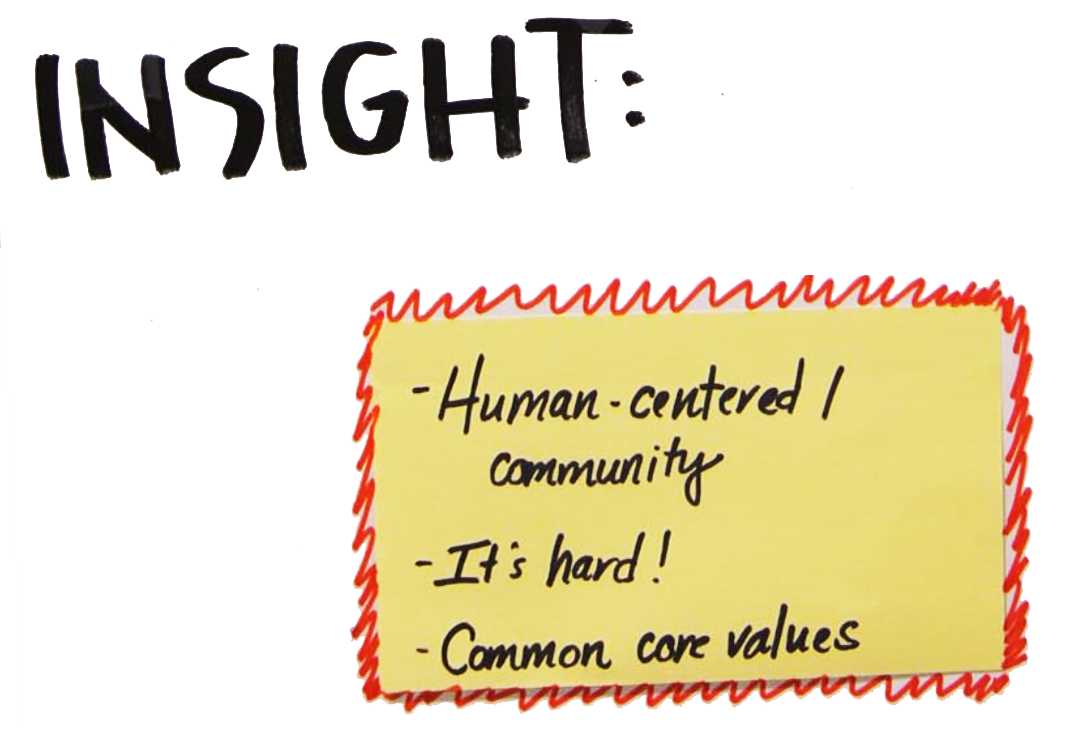 INSIGHT:
- Human-centered /
community
- It's hard!
- Common core values